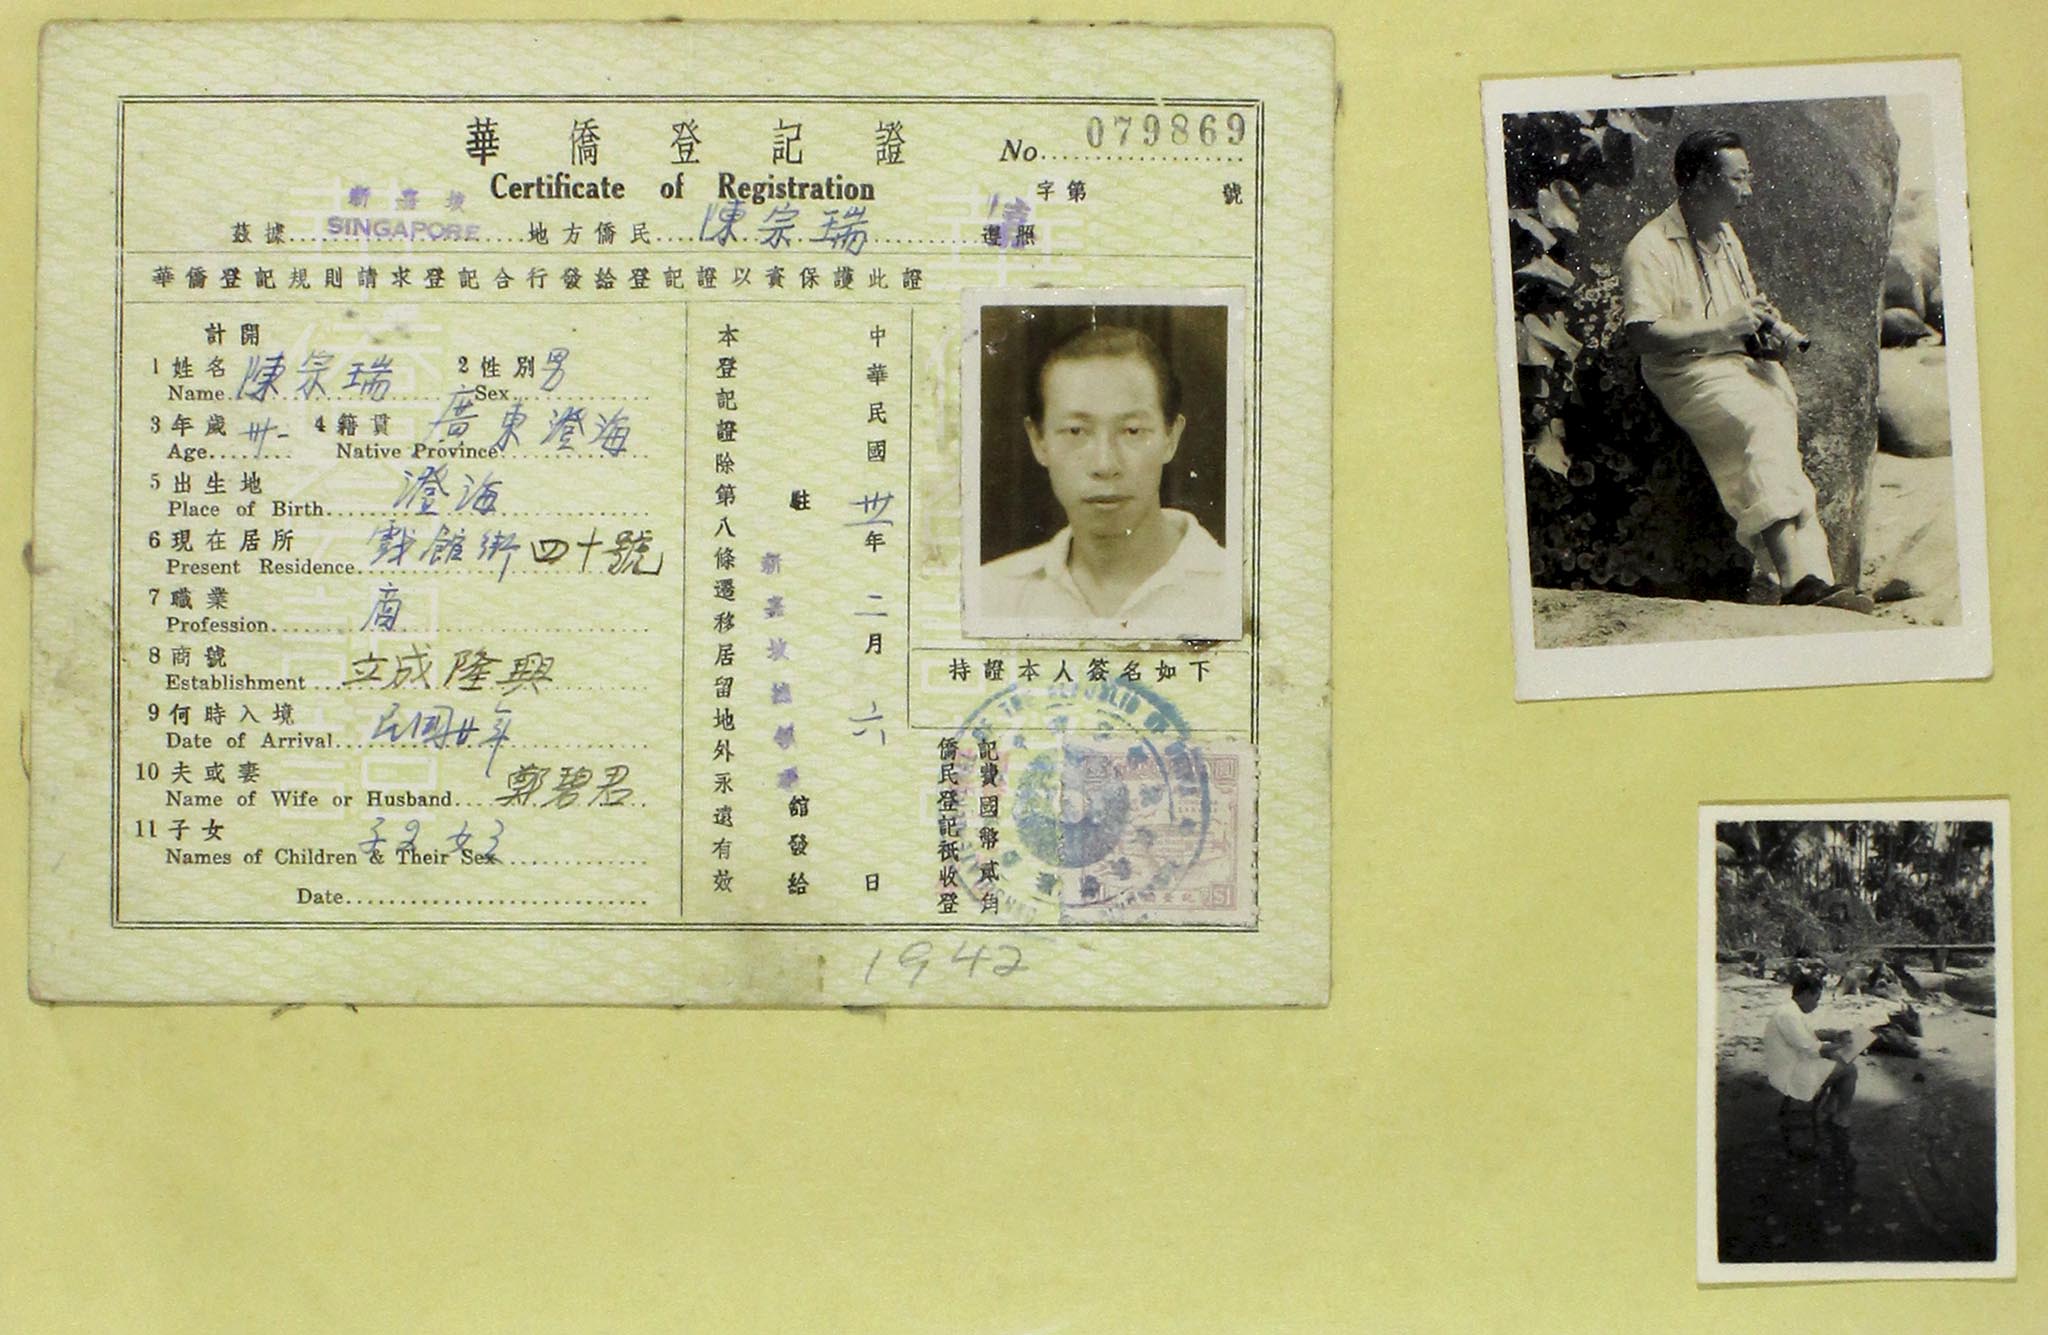 華僑登記證
No. 079869
Certificate of Registration
字第 號
新嘉坡
茲據 SINGAPORE 地方僑民 陳宗瑞 遵照
華僑登記規則請求登記合行發給登記證以資保護此證
計開
1 姓名 陳宗瑞 2 性別 男
Name Sex
3 年歲 卅一 4 籍貫 廣東澄海
Age Native Province
5 出生地 澄海
Place of Birth
6 現在居所 戲館街四十號
Present Residence
7 職業 商
Profession
8 商號 立成隆興
Establishment
9 何時入境 民國廿年
Date of Arrival
10 夫或妻 鄭碧君
Name of Wife or Husband
11 子女 子2 女3
Names of Children & Their Sex
Date
本登記證除第八條遷移居留地外永遠有效
駐新嘉坡總領事館發給
中華民國卅一年二月六日
持證本人簽名如下
僑民登記祇收登
記費國幣貳角
$1
1942